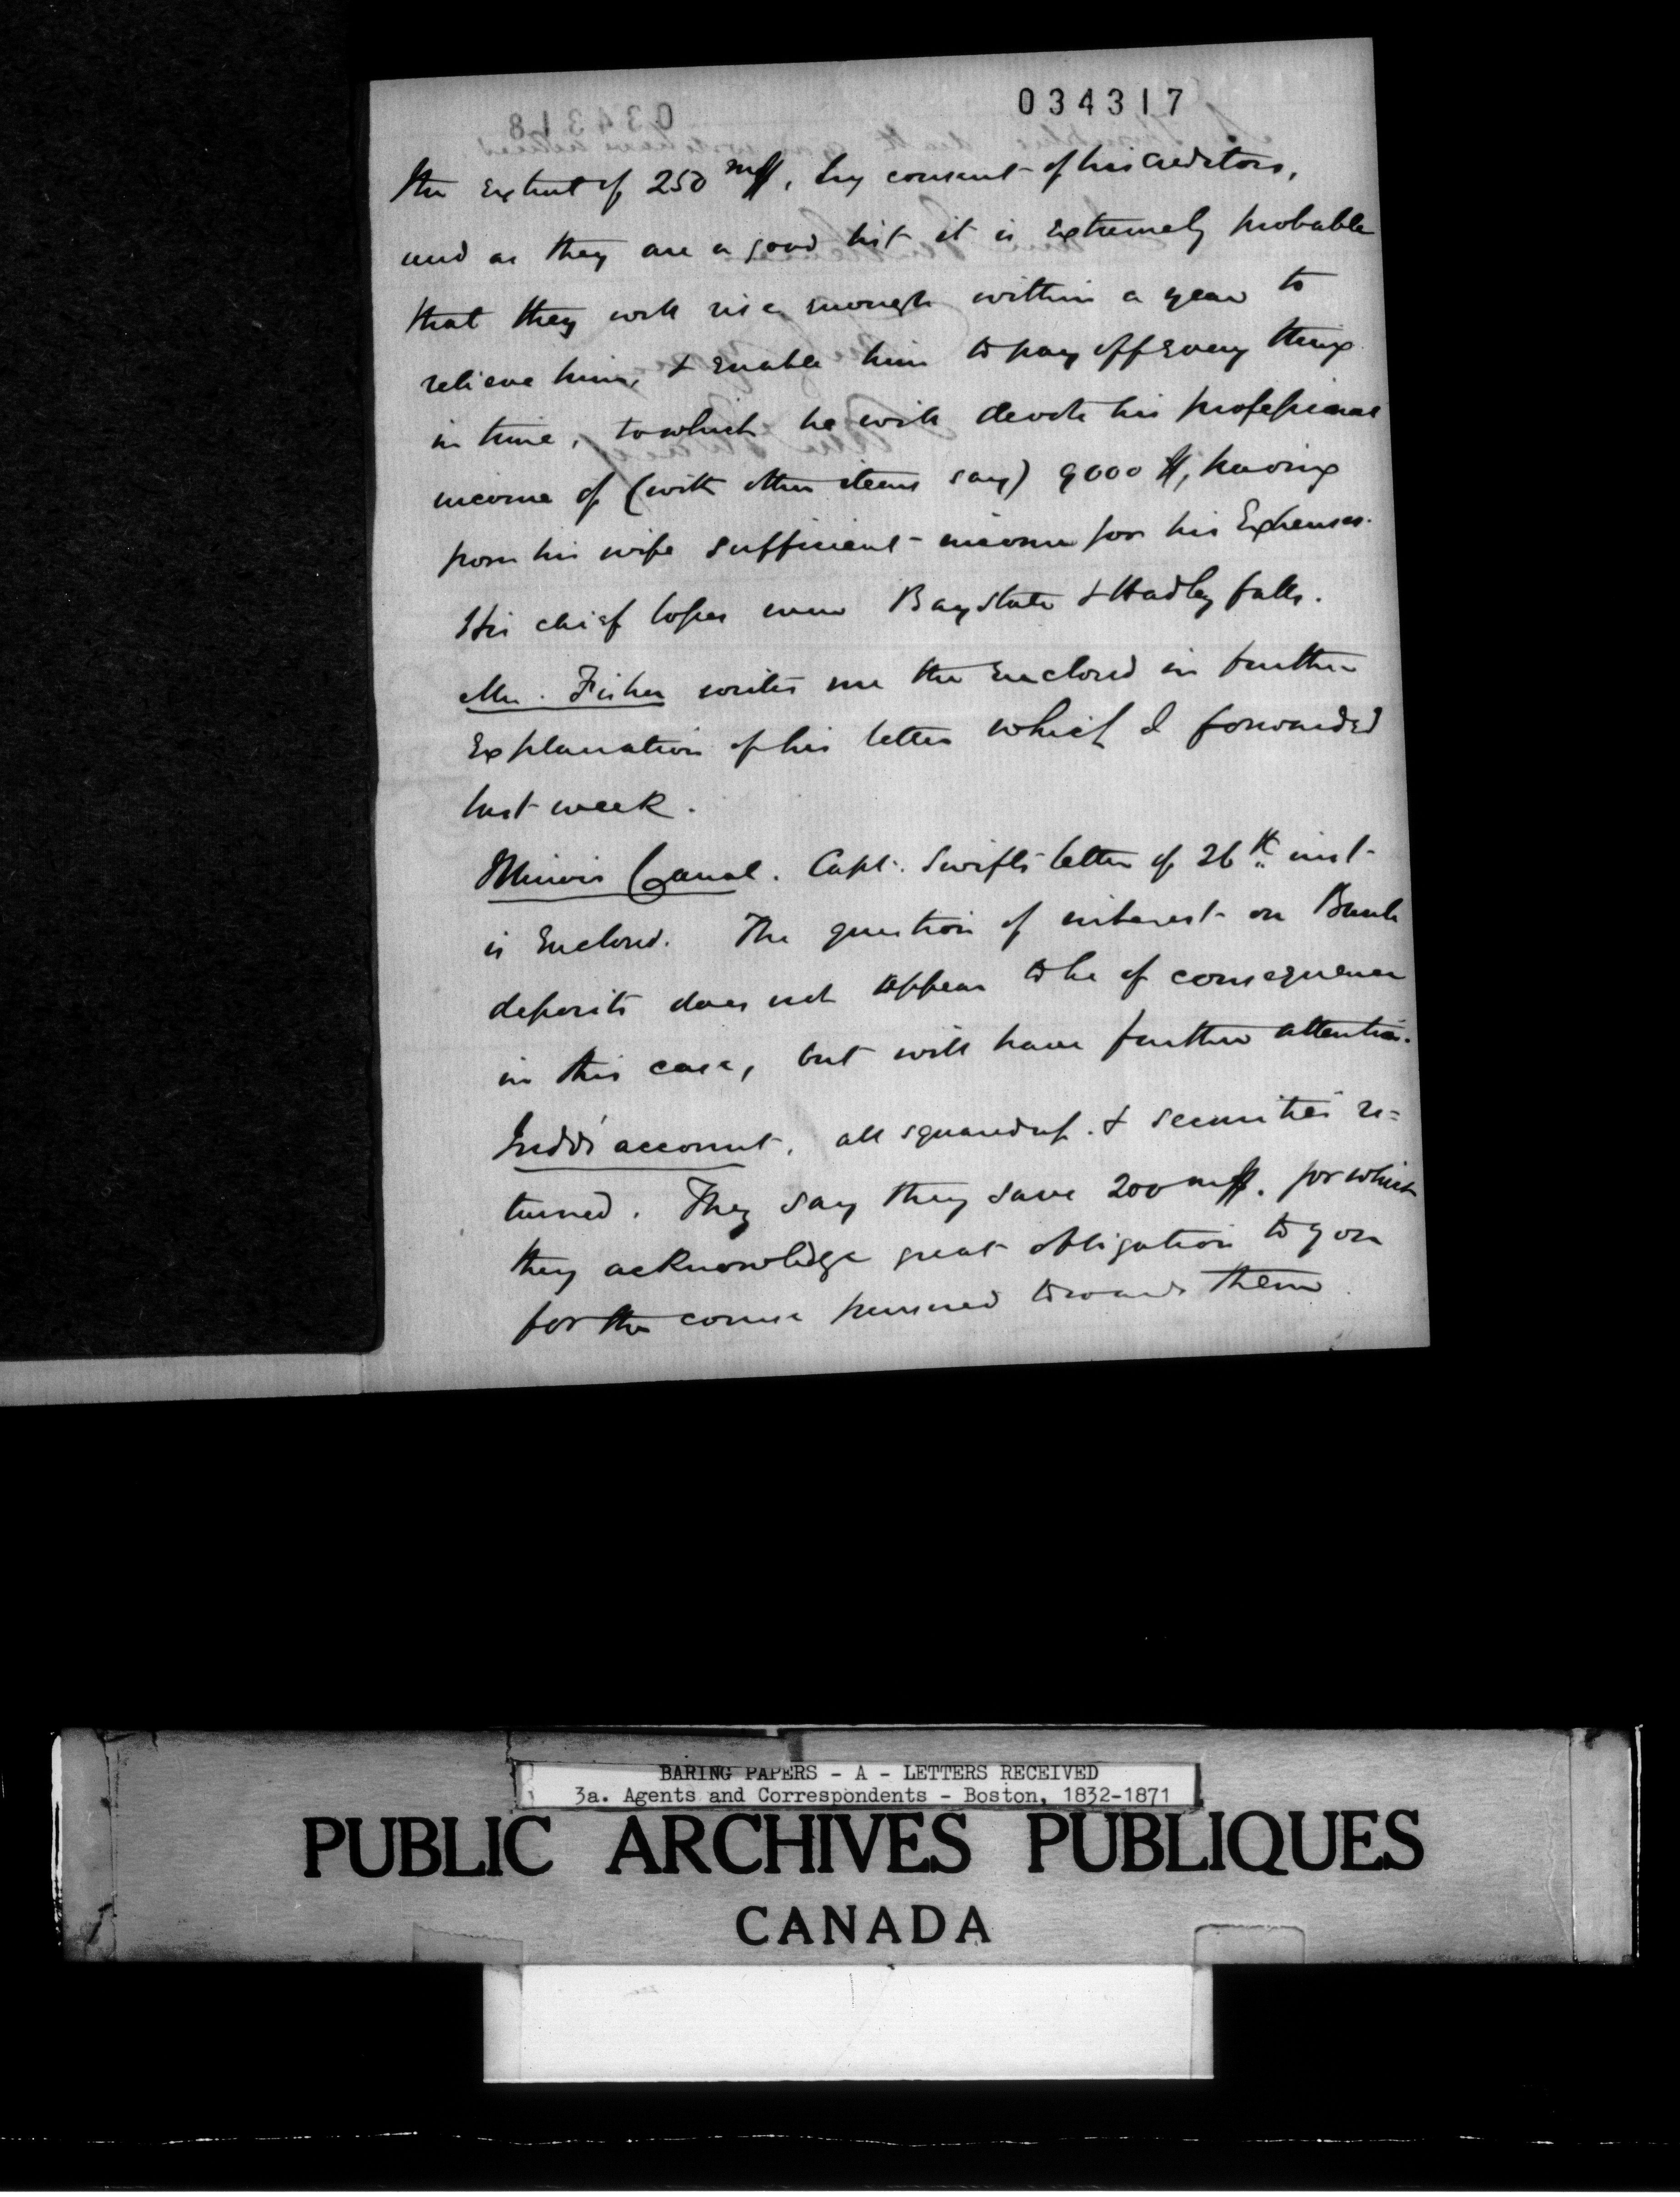 034317
the extent of 250 m$, by consent of his creditors,
and as they are a good list it is extremely probable
that they will rise enough within a year to
relieve him, & enable him to pay off every thing
in time, to which he will devote his professional
income of (with other items say) 9000 $, having
from his wife sufficient income for his Expenses.
His chief losses were Bay State & Hadley falls.
Mr. Fisher writes me the Enclosed in further
Explanation of his letter which I forwarded
last week.
Illinois Canal. Capt. Swift's letter of 26th inst
is Enclosed. The question of interest on Bank
deposits does not appear to be of consequence
in this case, but will have further attention.
account, all squared up. & securities re=
turned. They say they save 200 m$. for which
they acknowledge great obligation to you
for the course pursued towards them.
BARING PAPERS - A - LETTERS RECEIVED
3a. Agents and Correspondents - Boston, 1832-1871
PUBLIC ARCHIVES PUBLIQUES
CANADA